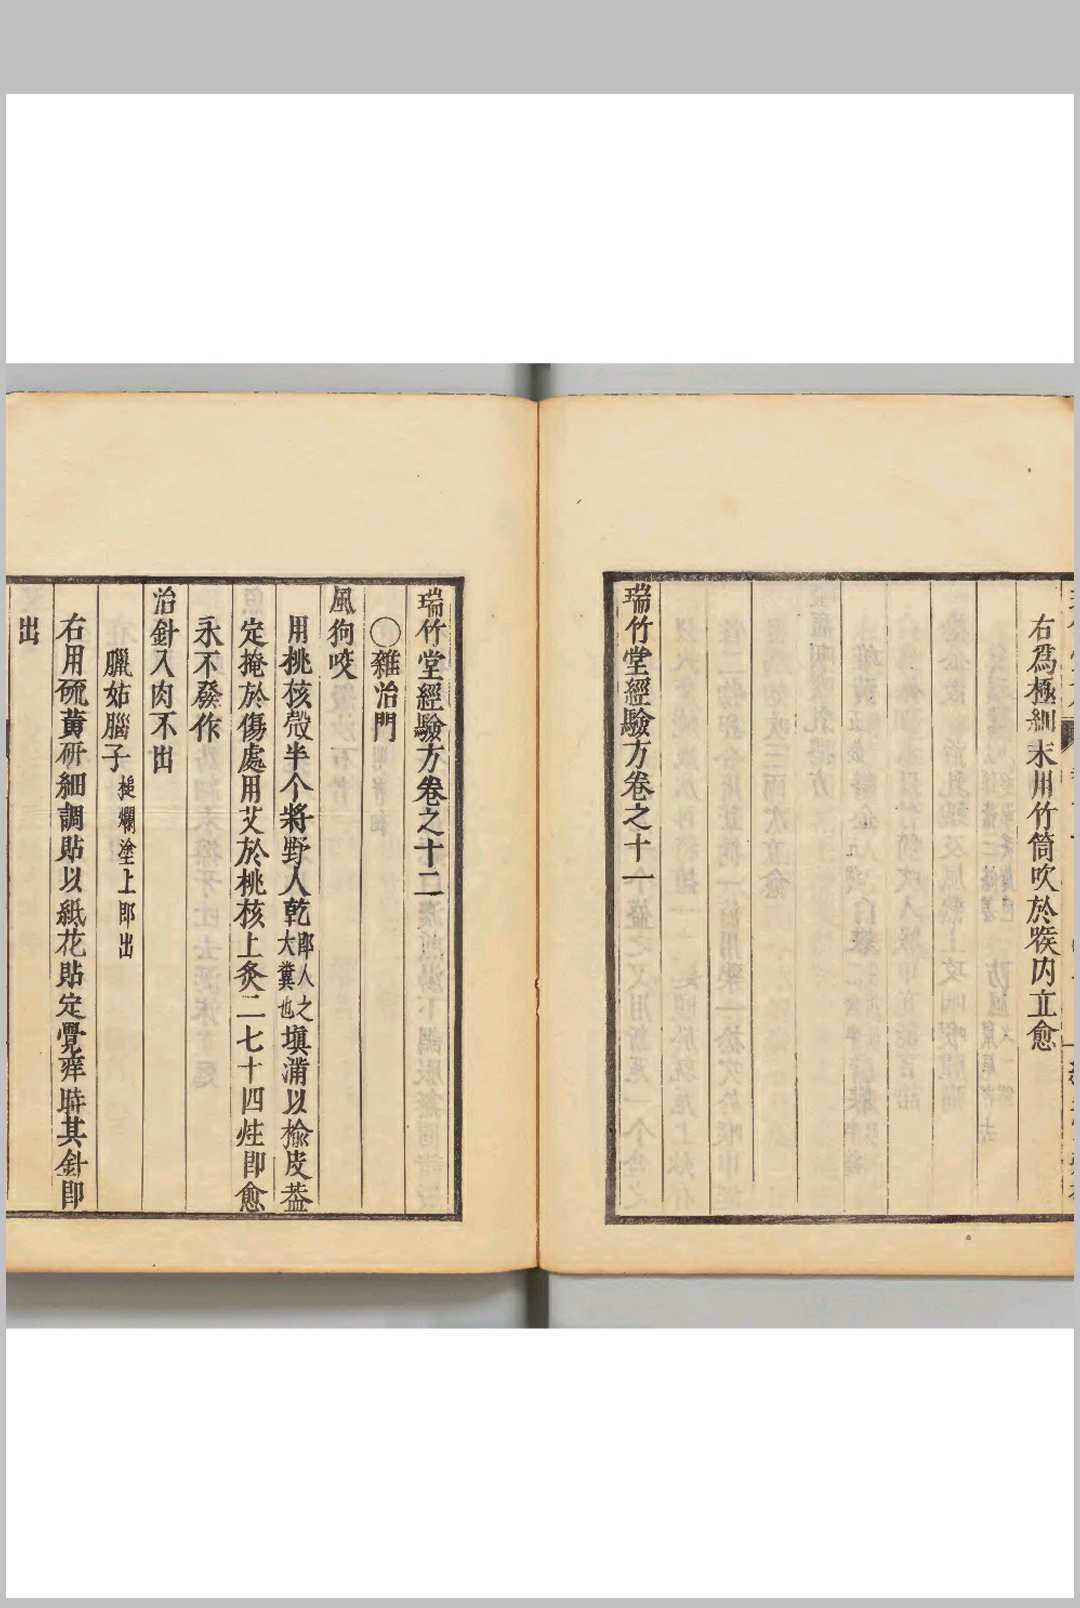 右爲極細末用竹筒吹於喉内立愈
瑞竹堂經驗方卷之十一
瑞竹堂經驗方卷之十二
〇雜治門
風狗咬
用桃核殼半个將野人乾即人之大糞也塡滿以榆皮葢
定掩於傷處用艾於桃核上灸二七十四炷即愈
永不發作
治針入肉不出
臘姑腦子搥爛塗上即出
右用硫黄研細調貼以紙花貼定覺痒時其針即
出